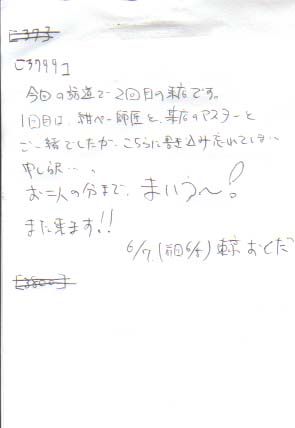 [3799]
今回の訪道で2回目の来店です。
1回目は、紺ベー師匠と、某店のマスターと
ご一緒でしたが、こちらに書き込み忘れてしまい
申し訳…、
お二人の分まで、まいう〜!
また来ます!!
6/7.(前回6/5) 東京 おくだ
[3800]